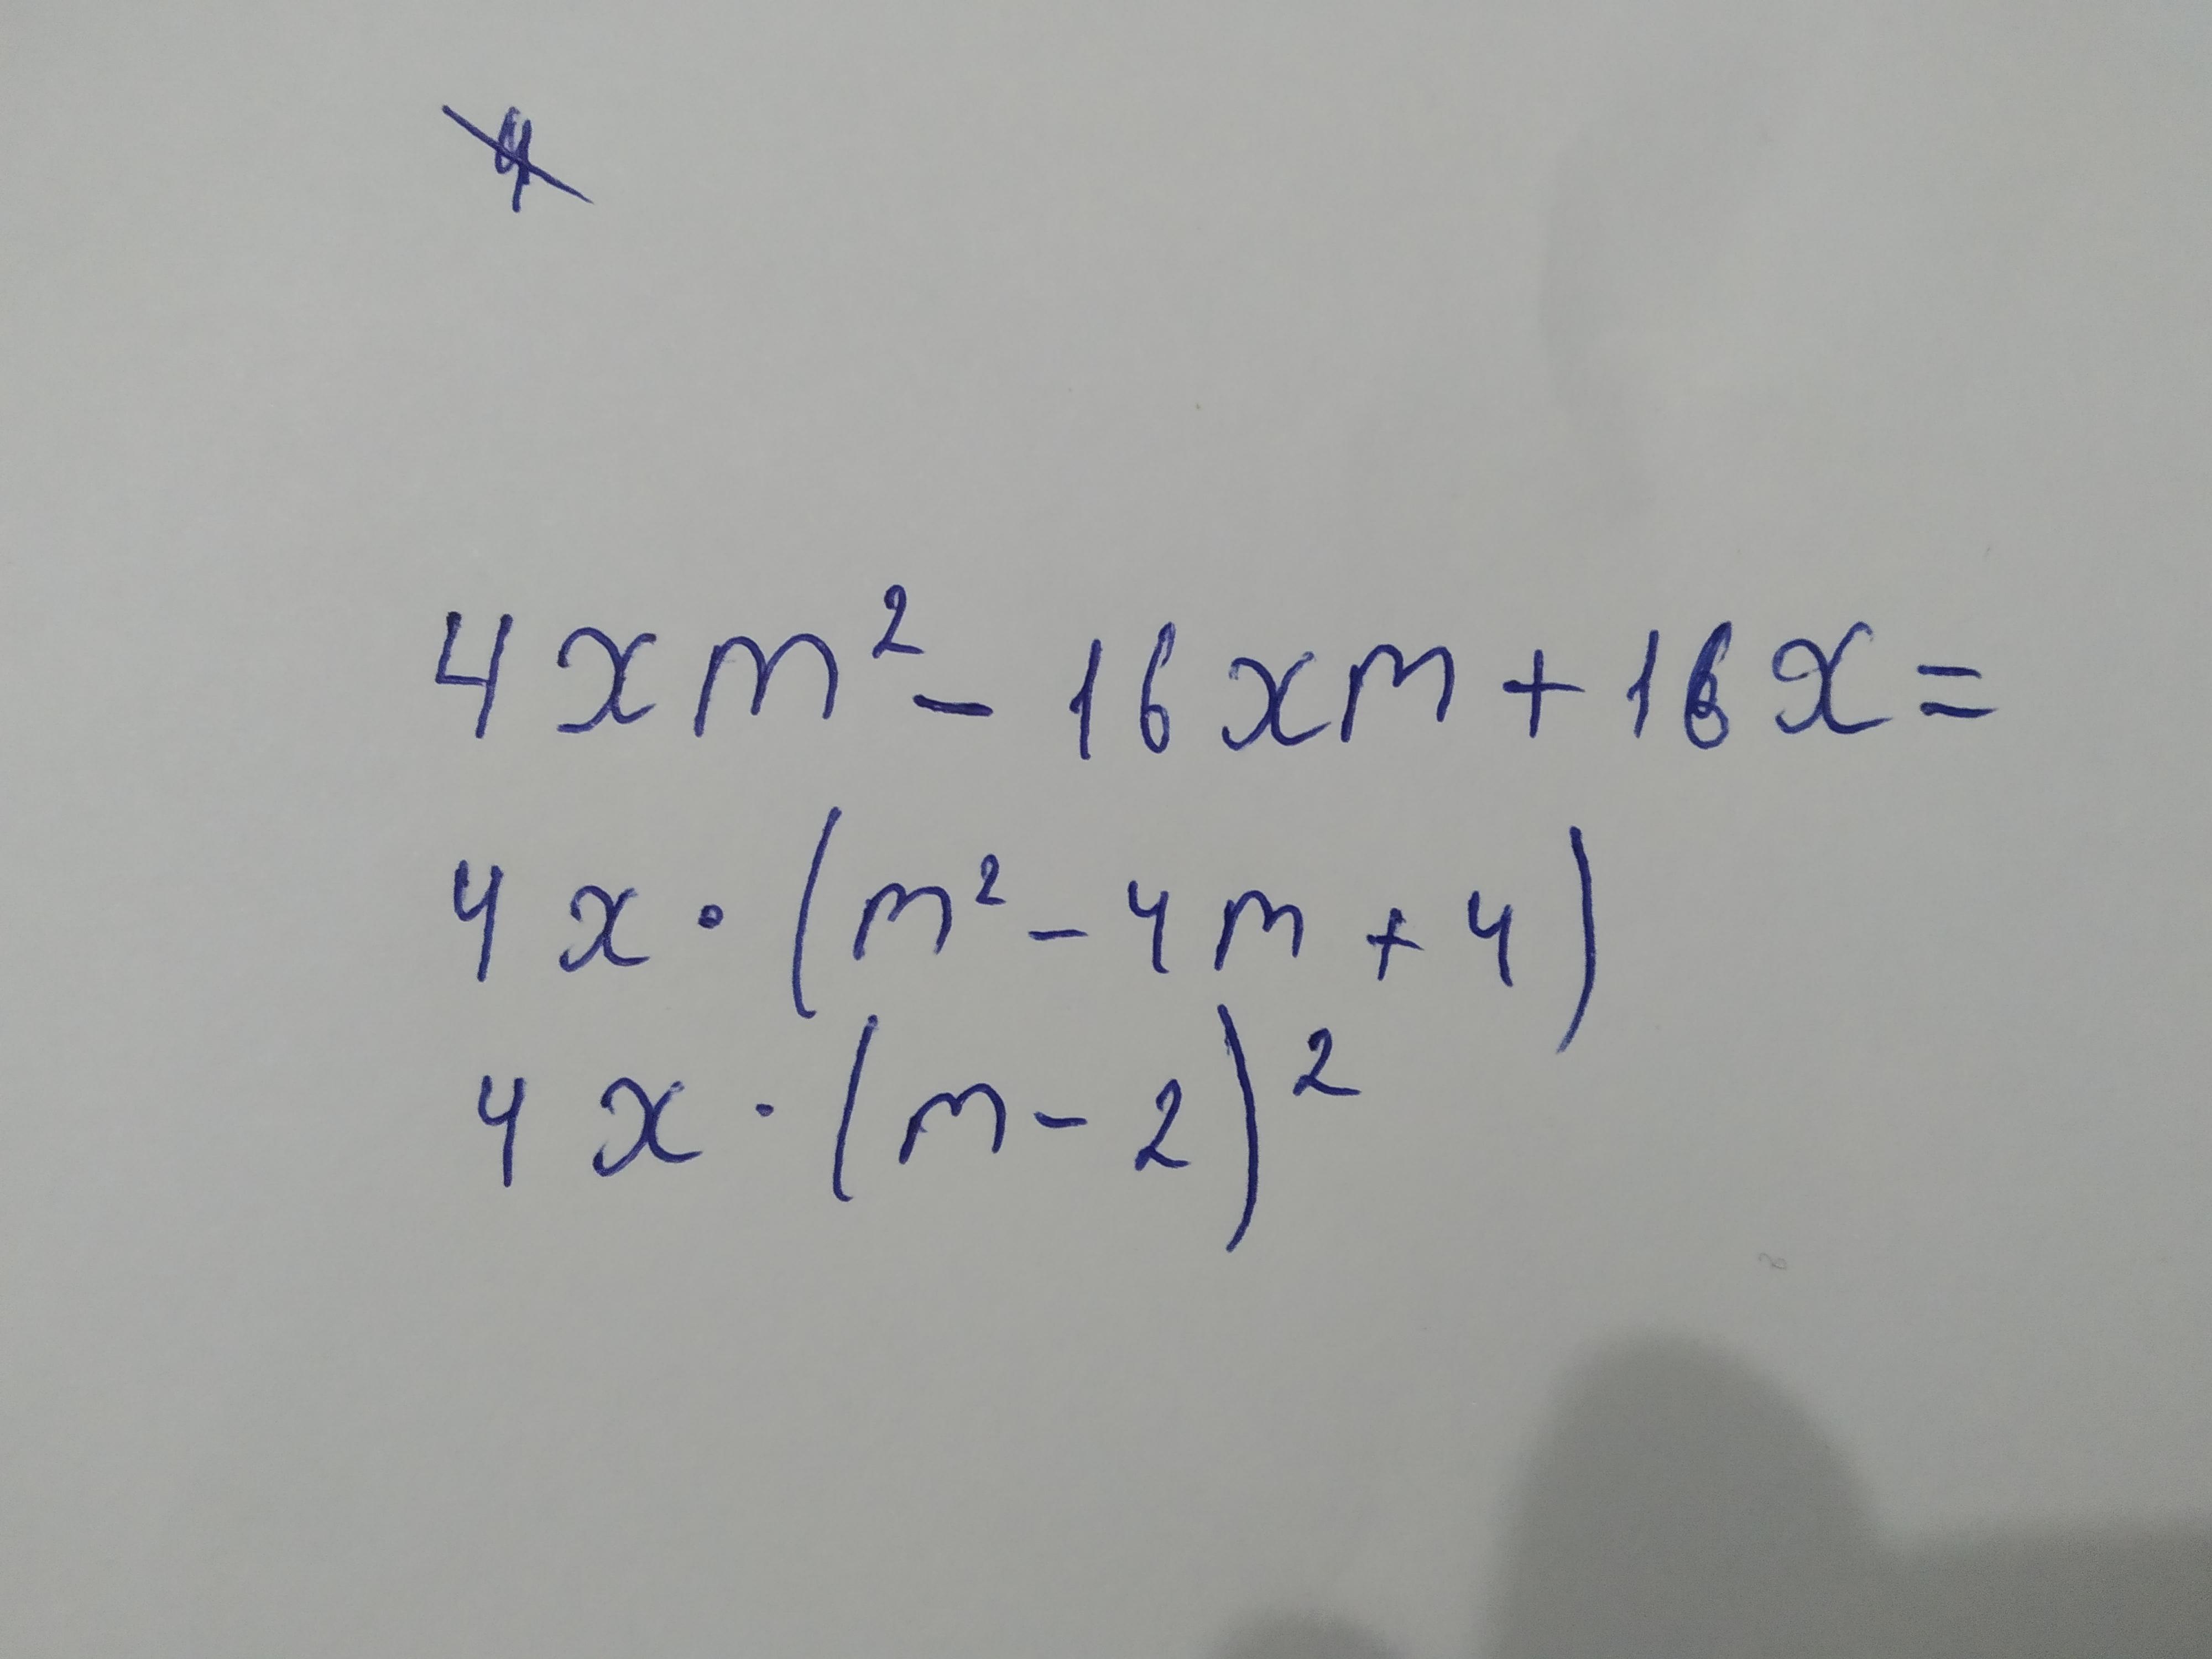 4xm² - 16xm + 16x =
4x · (m² - 4m + 4)
4x · (m - 2)²